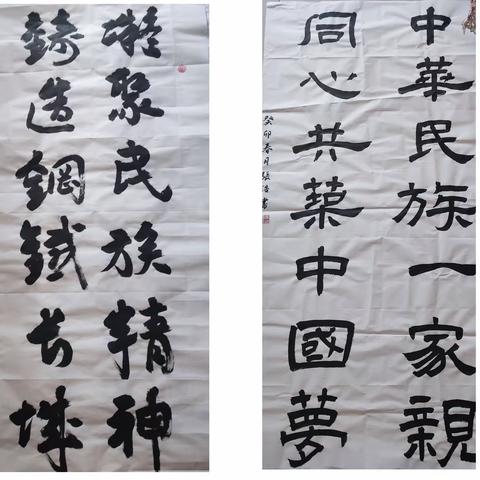 凝聚民族精神
鑄造鋼鐵長城
中華民族一家親
同心共築中國夢
癸卯春月張浩書